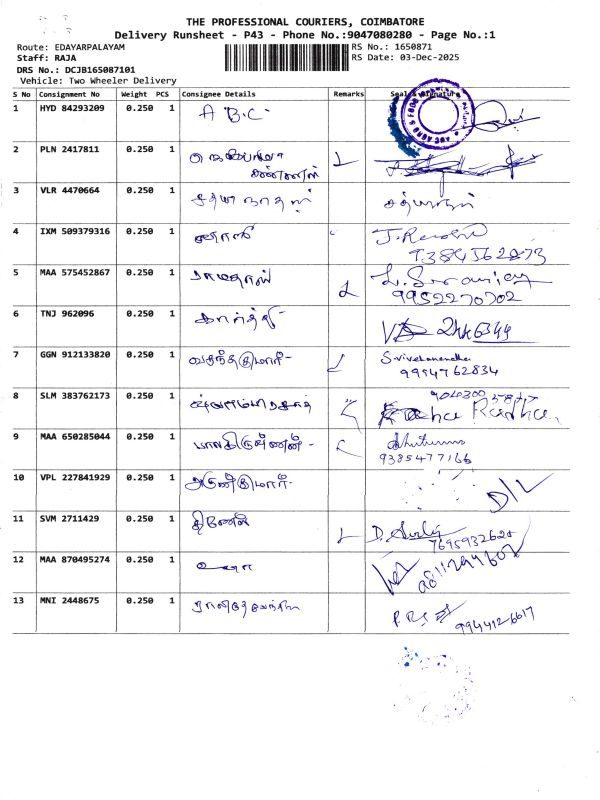 THE PROFESSIONAL COURIERS, COIMBATORE
Delivery Runsheet - P43 - Phone No.:9047080280 - Page No.:1
Route: EDAYARPALAYAM
RS No.: 1650871
Staff: RAJA
RS Date: 03-Dec-2025
DRS No.: DCJB165087101
Vehicle: Two Wheeler Delivery
S No Consignment No Weight PCS Consignee Details Remarks Seal & Signature
1 HYD 84293209 0.250 1 A B.C
2 PLN 2417811 0.250 1
3 VLR 4470664 0.250 1 சத்யா நாதன் சத்யநாதன்
4 IXM 509379316 0.250 1 வாணி
5 MAA 575452867 0.250 1 ராமதாஸ்
9952270702
6 TNJ 962096 0.250 1 கார்த்தி
7 GGN 912133820 0.250 1 வசந்தகுமார் S.vivekanandha
9994762834
8 SLM 383762173 0.250 1
9 MAA 650285044 0.250 1 பாலகிருஷ்ணன்
9385477166
10 VPL 227841929 0.250 1 அருண்குமார் D/L
11 SVM 2711429 0.250 1 தினேஷ்
12 MAA 870495274 0.250 1 உஷா
13 MNI 2448675 0.250 1